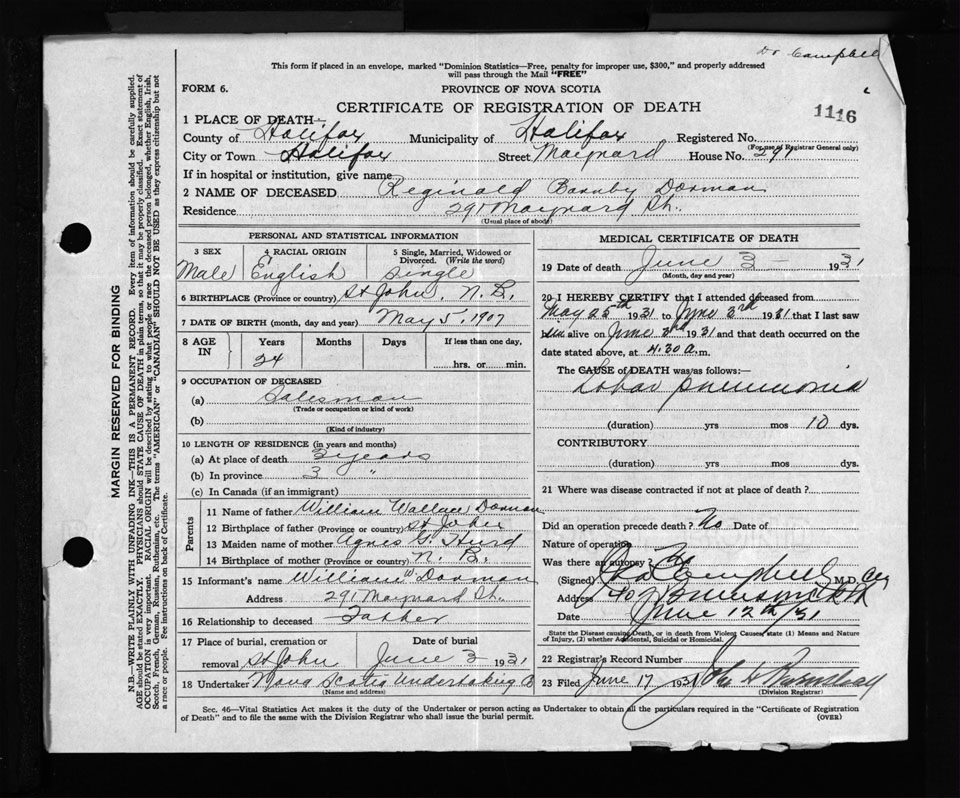 Dr Campbell
This form if placed in an envelope, marked "Dominion Statistics—Free, penalty for improper use, $300," and properly addressed
will pass through the Mail "FREE"
FORM 6.
PROVINCE OF NOVA SCOTIA
CERTIFICATE OF REGISTRATION OF DEATH
1116
1 PLACE OF DEATH—
County of Halifax Municipality of Halifax Registered No.
(For use of Registrar General only)
City or Town Halifax Street Maynard House No. 291
If in hospital or institution, give name
2 NAME OF DECEASED Reginald Barnby Dorman
Residence 291 Maynard St.
(Usual place of abode)
PERSONAL AND STATISTICAL INFORMATION
3 SEX
Male
4 RACIAL ORIGIN
English
5 Single, Married, Widowed or
Divorced. (Write the word)
Single
6 BIRTHPLACE (Province or country) St John, N.B.
7 DATE OF BIRTH (month, day and year) May 5, 1907
8 AGE
IN
Years
24
Months
Days
If less than one day,
hrs. or min.
9 OCCUPATION OF DECEASED
(a) Salesman
(Trade or occupation or kind of work)
(b)
(Kind of industry)
10 LENGTH OF RESIDENCE (in years and months)
(a) At place of death 3 years
(b) In province 3 "
(c) In Canada (if an immigrant)
Parents
11 Name of father William Wallace Dorman
12 Birthplace of father (Province or country) St John
13 Maiden name of mother Agnes G. Hurd
14 Birthplace of mother (Province or country) N. B.
15 Informant's name William W Dorman
Address 291 Maynard St.
16 Relationship to deceased Father
17 Place of burial, cremation or
removal St John
Date of burial
June 3 1931
18 Undertaker Nova Scotia Undertaking
(Name and address)
MEDICAL CERTIFICATE OF DEATH
19 Date of death June 3 — 1931
(Month, day and year)
20 I HEREBY CERTIFY that I attended deceased from
May 25th 1931 to June 3rd 1931 that I last saw
him alive on June 3rd 1931 and that death occurred on the
date stated above, at 4.30 a.m.
The CAUSE of DEATH was as follows:—
Lobar pneumonia
(duration) yrs mos 10 dys.
CONTRIBUTORY
(duration) yrs mos dys.
21 Where was disease contracted if not at place of death?
Did an operation precede death? No Date of
Nature of operation
Was there an autopsy?
(Signed) Campbell M.D.
Address
Date June 12th/31
State the Disease causing Death, or in death from Violent Causes, state (1) Means and Nature
of Injury, (2) whether Accidental, Suicidal or Homicidal.
22 Registrar's Record Number
23 Filed June 17 1931
(Division Registrar)
Sec. 46—Vital Statistics Act makes it the duty of the Undertaker or person acting as Undertaker to obtain all the particulars required in the "Certificate of Registration
of Death" and to file the same with the Division Registrar who shall issue the burial permit.
(OVER)
MARGIN RESERVED FOR BINDING
N.B.—WRITE PLAINLY WITH UNFADING INK—THIS IS A PERMANENT RECORD. Every item of information should be carefully supplied.
AGE should be stated EXACTLY. PHYSICIANS should STATE CAUSE OF DEATH in plain terms, so that it may be properly classified. Exact statement of
OCCUPATION is very important. RACIAL ORIGIN will be described by stating to what people or race the deceased person belonged, whether English, Irish,
Scotch, French, German, Russian, Ruthenian, etc. The terms "AMERICAN" or "CANADIAN" SHOULD NOT BE USED as they express citizenship but not
a race or people. See instructions on back of Certificate.